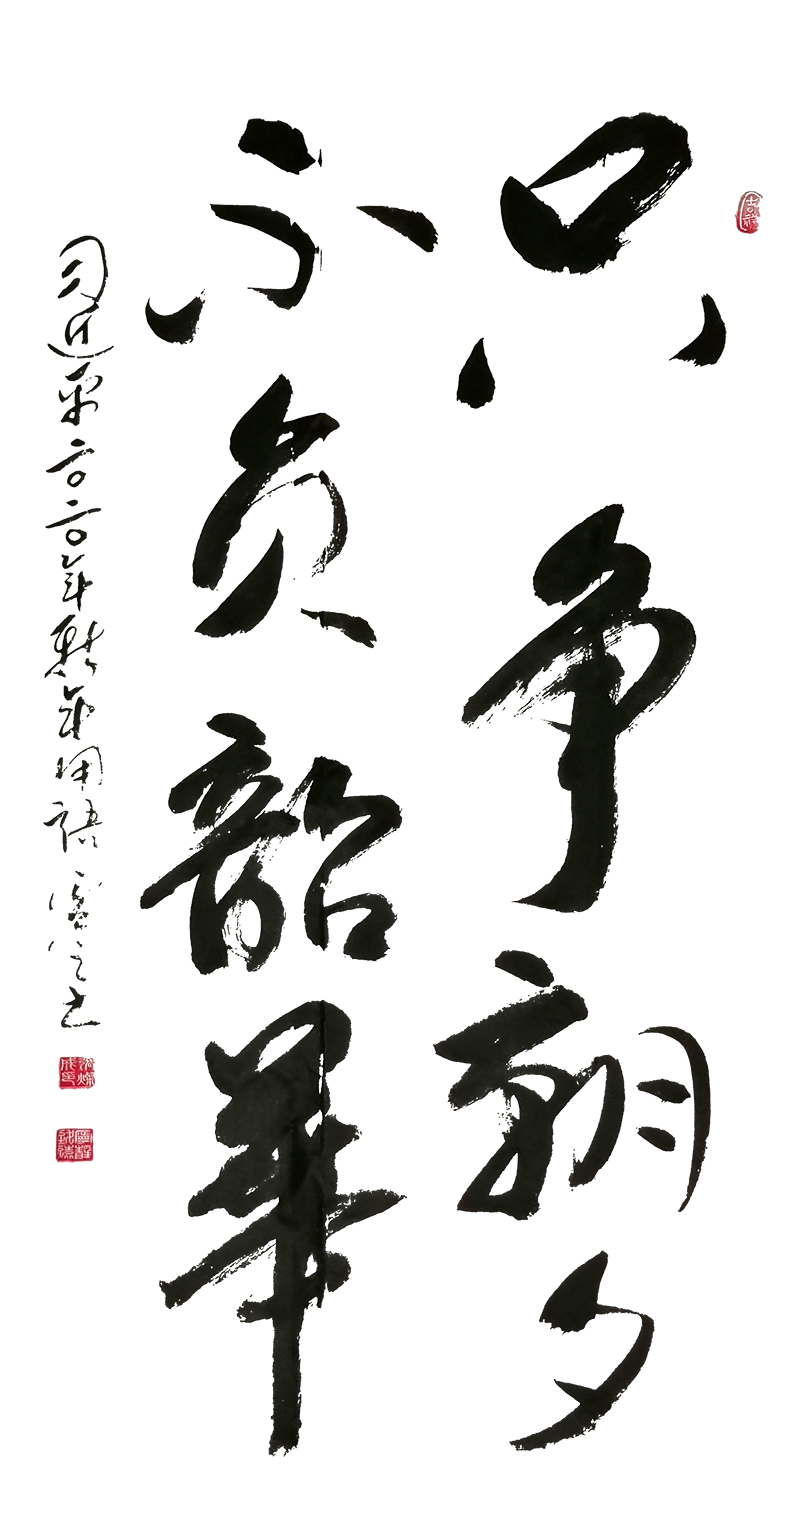 只争朝夕
不负韶華
习近平二〇二〇年新年用語